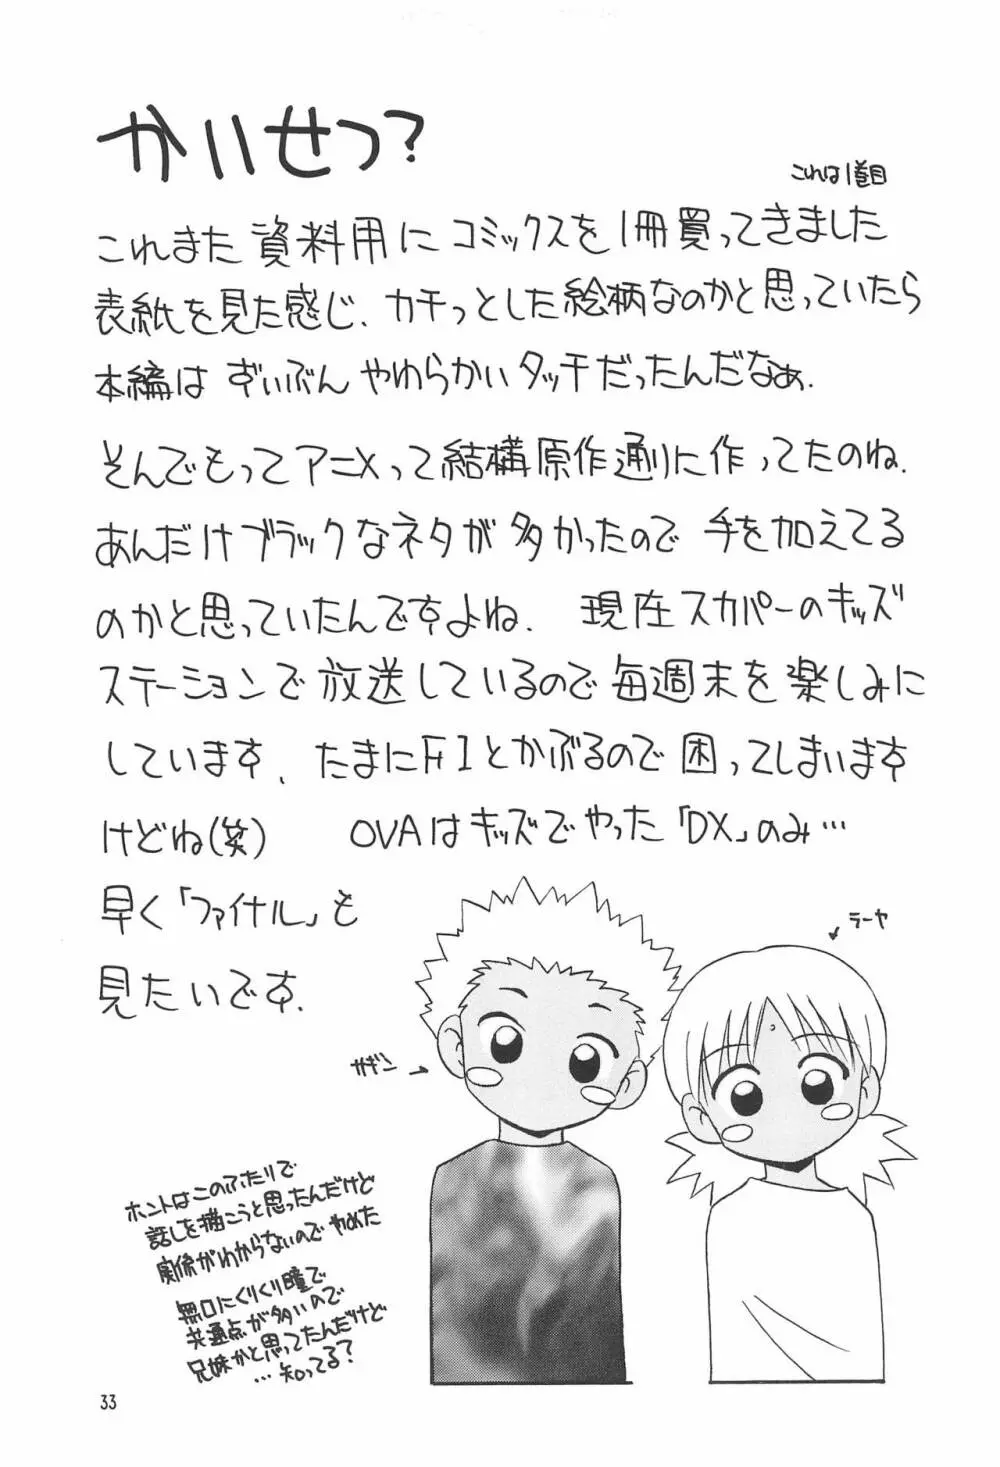 かいせつ?
これは1巻目
これまた資料用にコミックスを1冊買ってきました
表紙を見た感じ、カチっとした絵柄なのかと思っていたら
本編はずいぶんやわらかいタッチだったんだなぁ.
そんでもってアニメって結構原作通りに作ってたのね.
あんだけブラックなネタが多かったので手を加えてる
のかと思っていたんですよね. 現在スカパーのキッズ
ステーションで放送しているので毎週末を楽しみに
しています. たまにF1とかぶるので困ってしまいます
けどね(笑) OVAはキッズでやった「DX」のみ…
早く「ファイナル」も
見たいです.
ラーヤ
ガギン
ホントはこのふたりで
話しを描こうと思ったんだけど
実係がわからないのでやめた
無口にくりくり瞳で
共通点が多いので
兄妹かと思ってたんだけど
…知ってる?
33